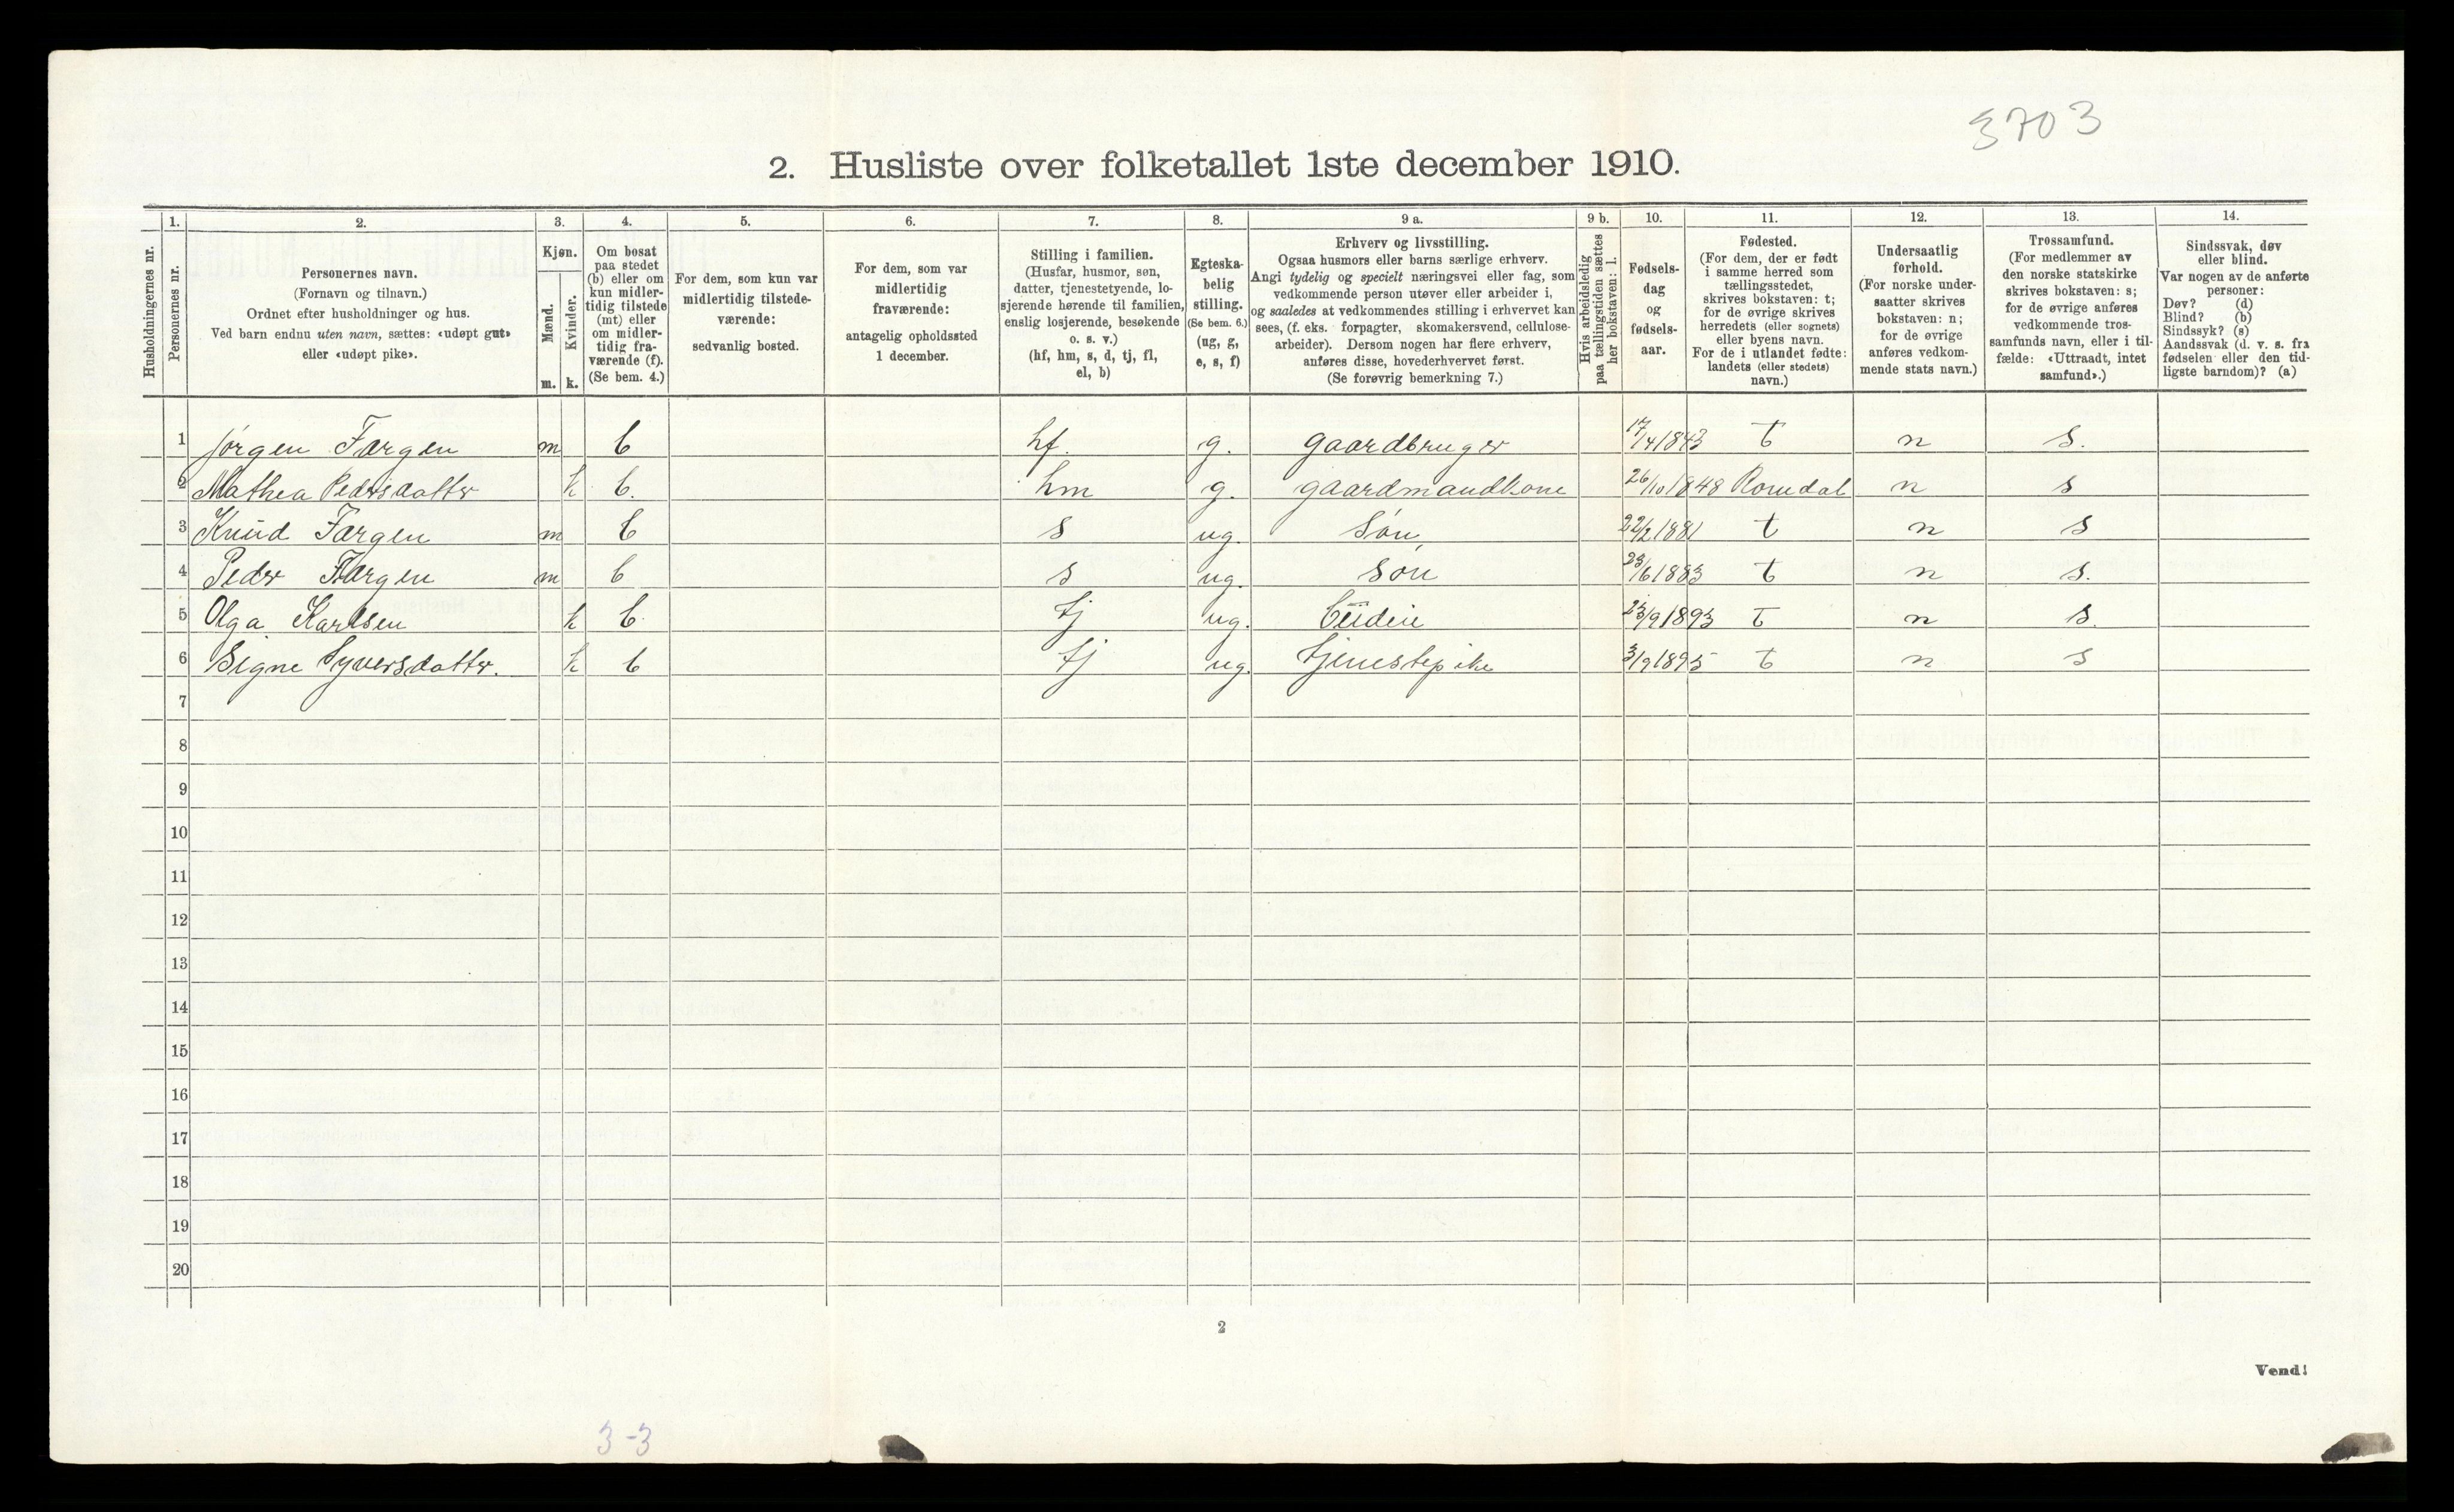 3703
2. Husliste over folketallet 1ste december 1910.
Husholdningernes nr.
1.
Personernes nr.
2.
Personernes navn.
(Fornavn og tilnavn.)
Ordnet efter husholdninger og hus.
Ved barn endnu uten navn, sættes: «udøpt gut»
eller «udøpt pike».
3.
Kjøn.
Mænd.
Kvinder.
m. k.
4.
Om bosat
paa stedet
(b) eller om
kun midler-
tidig tilstede
(mt) eller
om midler-
tidig fra-
værende (f).
(Se bem. 4.)
5.
For dem, som kun var
midlertidig tilstede-
værende:
sedvanlig bosted.
6.
For dem, som var
midlertidig
fraværende:
antagelig opholdssted
1 december.
7.
Stilling i familien.
(Husfar, husmor, søn,
datter, tjenestetyende, lo-
sjerende hørende til familien,
enslig losjerende, besøkende
o. s. v.)
(hf, hm, s, d, tj, fl,
el, b)
8.
Egteska-
belig
stilling.
(Se bem. 6.)
(ug, g,
e, s, f)
9 a.
Erhverv og livsstilling.
Ogsaa husmors eller barns særlige erhverv.
Angi tydelig og specielt næringsvei eller fag, som
vedkommende person utøver eller arbeider i,
og saaledes at vedkommendes stilling i erhvervet kan
sees, (f. eks. forpagter, skomakersvend, cellulose-
arbeider). Dersom nogen har flere erhverv,
anføres disse, hovederhvervet først.
(Se forøvrig bemerkning 7.)
9 b.
Hvis arbeidsledig
paa tællingstiden sættes
her bokstaven: l.
10.
Fødsels-
dag
og
fødsels-
aar.
11.
Fødested.
(For dem, der er født
i samme herred som
tællingsstedet,
skrives bokstaven: t;
for de øvrige skrives
herredets (eller sognets)
eller byens navn.
For de i utlandet fødte:
landets (eller stedets)
navn.)
12.
Undersaatlig
forhold.
(For norske under-
saatter skrives
bokstaven: n;
for de øvrige
anføres vedkom-
mende stats navn.)
13.
Trossamfund.
(For medlemmer av
den norske statskirke
skrives bokstaven: s;
for de øvrige anføres
vedkommende tros-
samfunds navn, eller i til-
fælde: «Uttraadt, intet
samfund».)
14.
Sindssvak, døv
eller blind.
Var nogen av de anførte
personer:
Døv? (d)
Blind? (b)
Sindssyk? (s)
Aandssvak (d. v. s. fra
fødselen eller den tid-
ligste barndom)? (a)
1 Jørgen Færgen m b hf. g. gaardbruger 17/4 1843 t n s.
2 Mathea Pedersdatter k b. hm g. gaardmandkone 26/10 1848 Romedal n s
3 Knud Færgen m b s ug. Søn, 22/2 1881 t n s
4 Peder Færgen m b s ug. søn 23/6 1883 t n s.
5 Olga Karlsen k b tj ug. 23/9 1893 t n s.
6 Signe Syversdatter. k b tj ug. tjenestepike 3/9 1895 t n s
7
8
9
10
11
12
13
14
15
16
17
18
19
20
2
Vend!
3-3